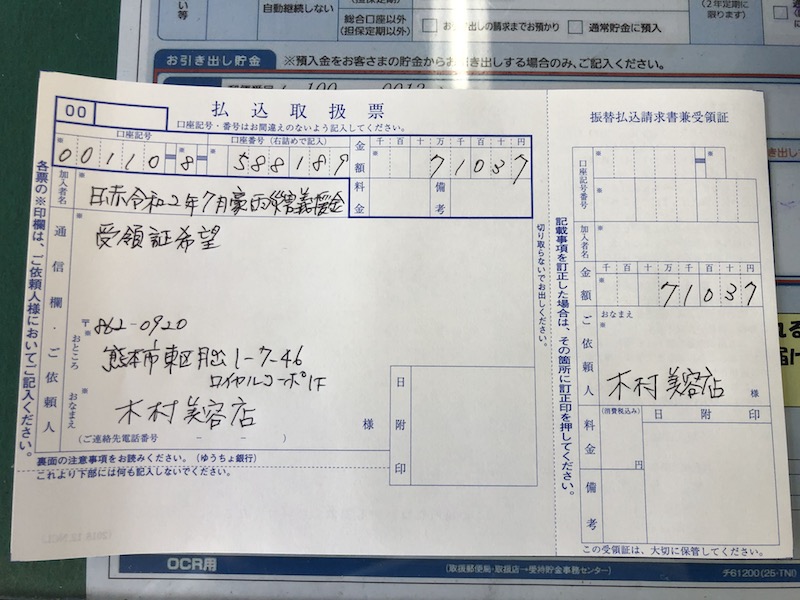 自動継続しない
総合口座以外
(担保定期以外)
お引き出しの請求までお預かり
通常貯金に預入
(2年定期に
限ります)
お引き出し貯金
※預入金をお客さまの貯金からお引き出しする場合のみ、ご記入ください。
00
払込取扱票
口座記号・番号はお間違えのないよう記入してください。
口座記号
口座番号(右詰めで記入)
00110-8-588189
金額
千百十万千百十円
71037
加入者名
日赤令和2年7月豪雨災害義援金
料金
備考
各票の※印欄は、ご依頼人様においてご記入ください。
通信欄・ご依頼人
受領証希望
〒
862-0920
おところ
熊本市東区月出1-7-46
ロイヤルコーポ1F
おなまえ
木村美容店
様
(ご連絡先電話番号 - - )
日附印
裏面の注意事項をお読みください。(ゆうちょ銀行)
これより下部には何も記入しないでください。
切り取らないでお出しください。
記載事項を訂正した場合は、その箇所に訂正印を押してください。
振替払込請求書兼受領証
口座記号番号
加入者名
金額
千百十万千百十円
71037
ご依頼人
おなまえ
木村美容店
様
料金
(消費税込み)
円
日附印
備考
この受領証は、大切に保管してください。
OCR用
(取扱郵便局・取扱店→受持貯金事務センター)
チ61200(25・TNI)